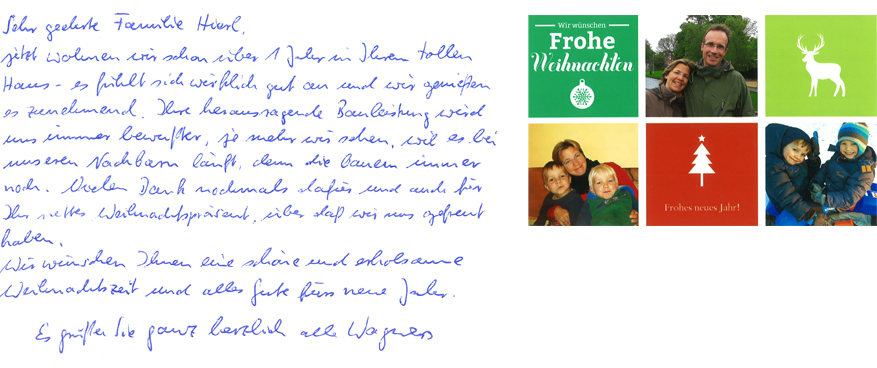 Sehr geehrte Familie Hierl,
jetzt wohnen wir schon über 1 Jahr in Ihrem tollen
Haus - es fühlt sich wirklich gut an und wir genießen
es zunehmend. Ihre herausragende Bauleistung wird
uns immer bewußter, je mehr wir sehen, wie es bei
unseren Nachbarn läuft, denn die bauen immer
noch. Vielen Dank nochmals dafür und auch für
Ihr nettes Weihnachtspräsent, über daß wir uns gefreut
haben.
Wir wünschen Ihnen eine schöne und erholsame
Weihnachtszeit und alles Gute fürs neue Jahr.
Es grüßen Sie ganz herzlich alle Wagners
Wir wünschen
Frohe
Weihnachten
Frohes neues Jahr!